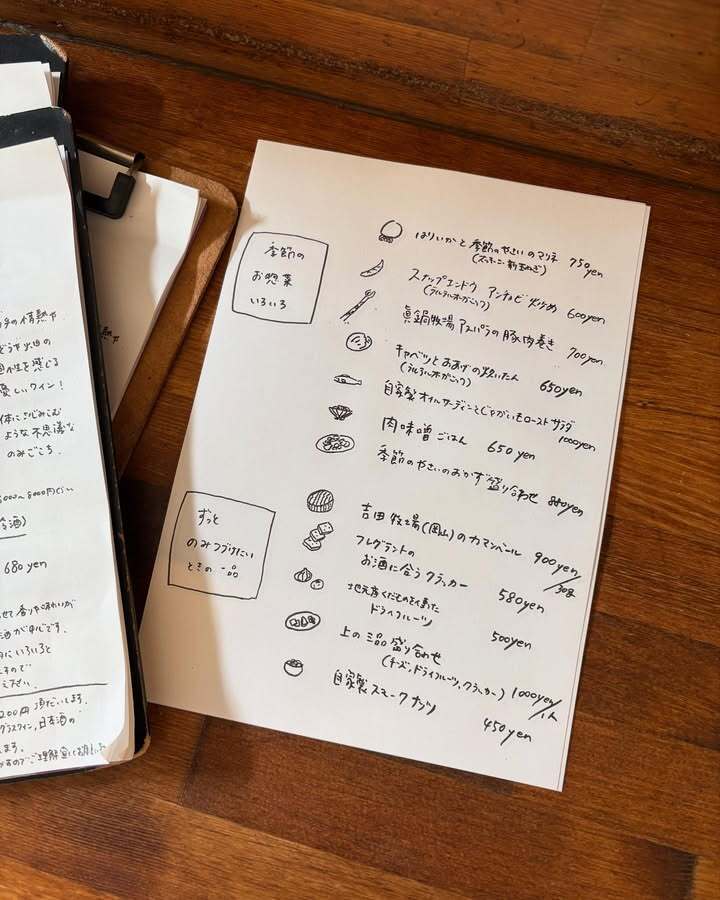 季節の
お惣菜
いろいろ
はりいかと季節のやさいのマリネ 750yen
(ズッキーニ 新玉ねぎ)
スナップエンドウ アンチョビ炒め 600yen
眞鍋牧場 アスパラの豚肉巻き 700yen
キャベツとおあげの炊いたん 650yen
自家製オイルサーディンとじゃがいもローストサラダ 1000yen
肉味噌ごはん 650yen
季節のやさいのおかず盛り合わせ 880yen
ずっと
のみつづけたい
ときの一品
吉田牧場(岡山)のカマンベール 900yen/30g
フレグラントの
お酒に合うクラッカー 580yen
地元産くだものを使った
ドライフルーツ 500yen
上の三品盛り合わせ
(チーズ、ドライフルーツ、クラッカー) 1000yen/1人
自家製スモークナッツ 450yen
の情熱や
個性を感じる
優しいワイン!
体にしみこむ
ような不思議な
のみごこち.
680yen
せて香りや味わいが
酒が中心です.
いろいろと
ますので
え下さい.
200円 頂だいします.
グラスワイン, 日本酒の
ます.
すのでご理解宜しく願い